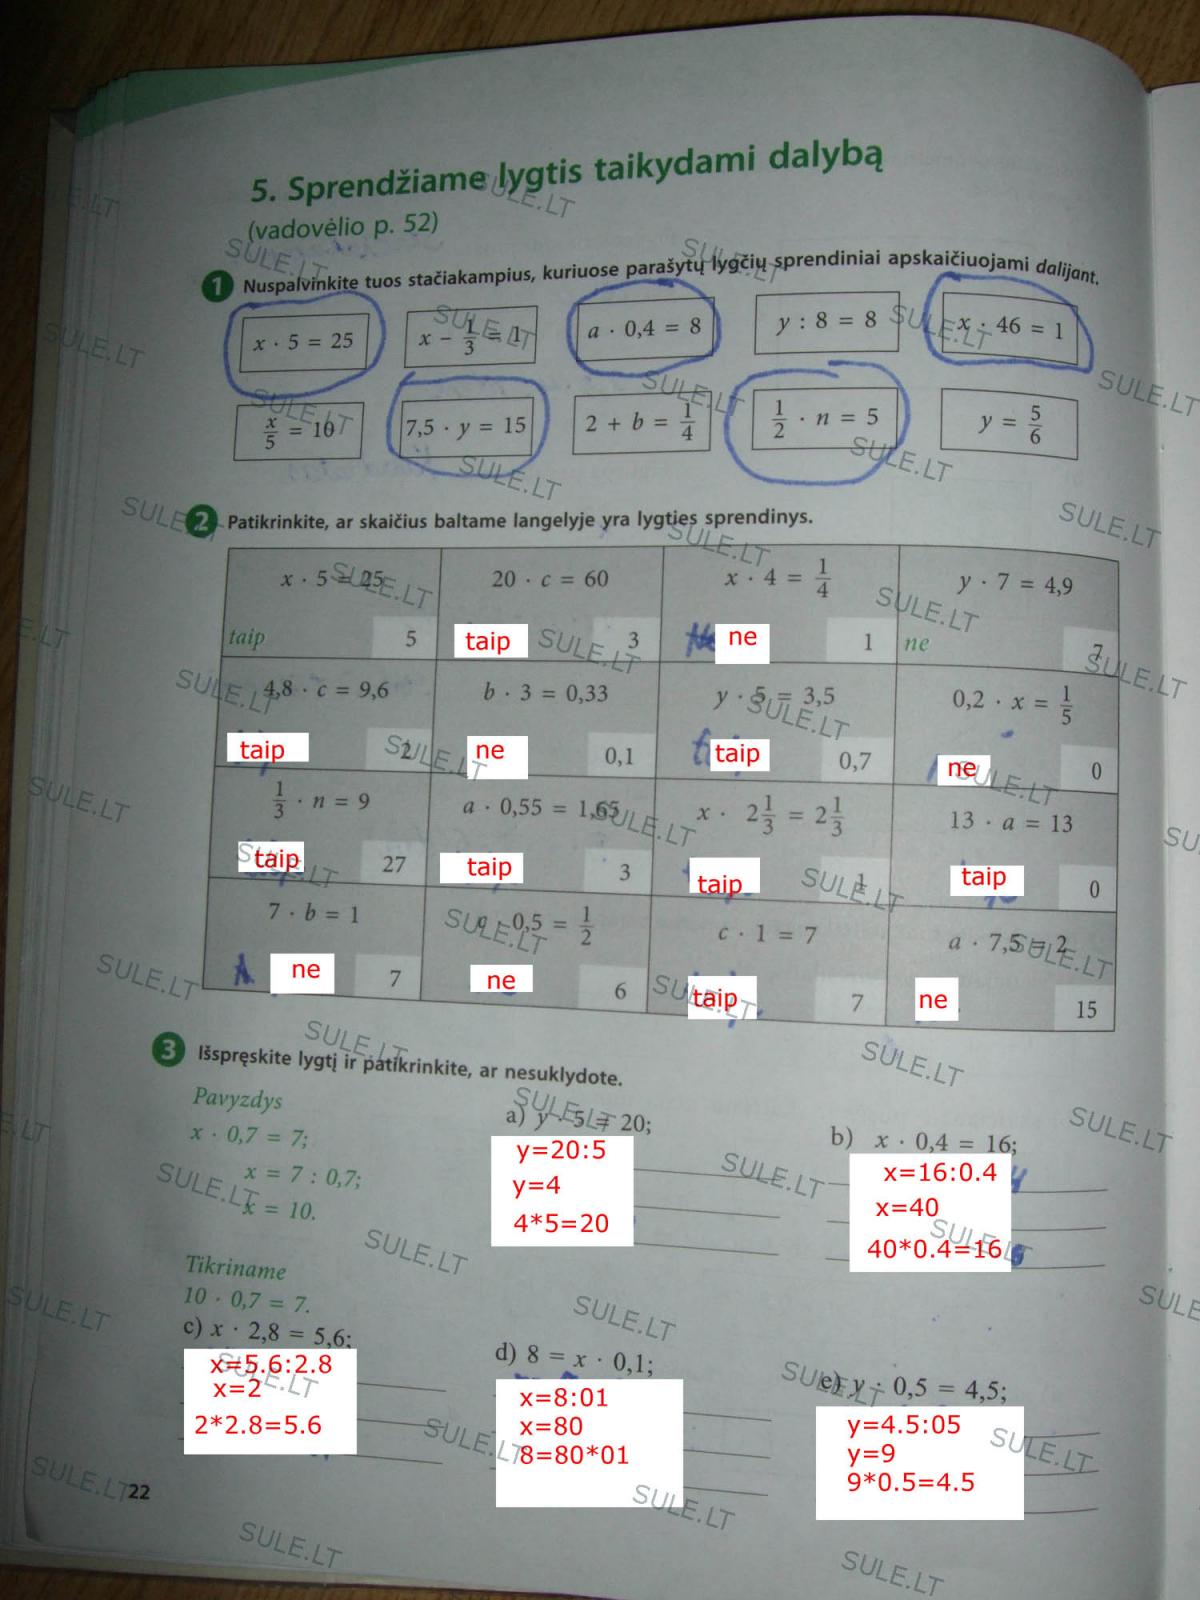 5. Sprendžiame lygtis taikydami dalybą
(vadovėlio p. 52)
1 Nuspalvinkite tuos stačiakampius, kuriuose parašytų lygčių sprendiniai apskaičiuojami dalijant.
x · 5 = 25 x − 1/3 = 1 a · 0,4 = 8 y : 8 = 8 x · 46 = 1
x/5 = 10 7,5 · y = 15 2 + b = 1/4 1/2 · n = 5 y = 5/6
2 Patikrinkite, ar skaičius baltame langelyje yra lygties sprendinys.
x · 5 = 25 20 · c = 60 x · 4 = 1/4 y · 7 = 4,9
taip 5 taip 3 ne 1 ne 7
4,8 · c = 9,6 b · 3 = 0,33 y · 5 = 3,5 0,2 · x = 1/5
taip 2 ne 0,1 taip 0,7 ne 0
1/3 · n = 9 a · 0,55 = 1,65 x · 2 1/3 = 2 1/3 13 · a = 13
taip 27 taip 3 taip 1 taip 0
7 · b = 1 · 0,5 = 1/2 c · 1 = 7 a · 7,5 = 2
ne 7 ne 6 taip 7 ne 15
3 Išspręskite lygtį ir patikrinkite, ar nesuklydote.
Pavyzdys
x · 0,7 = 7;
x = 7 : 0,7;
x = 10.
Tikriname
10 · 0,7 = 7.
a) y · 5 = 20;
y=20:5
y=4
4*5=20
b) x · 0,4 = 16;
x=16:0.4
x=40
40*0.4=16
c) x · 2,8 = 5,6;
x=5.6:2.8
x=2
2*2.8=5.6
d) 8 = x · 0,1;
x=8:01
x=80
8=80*01
e) y · 0,5 = 4,5;
y=4.5:05
y=9
9*0.5=4.5
22
SULE.LT